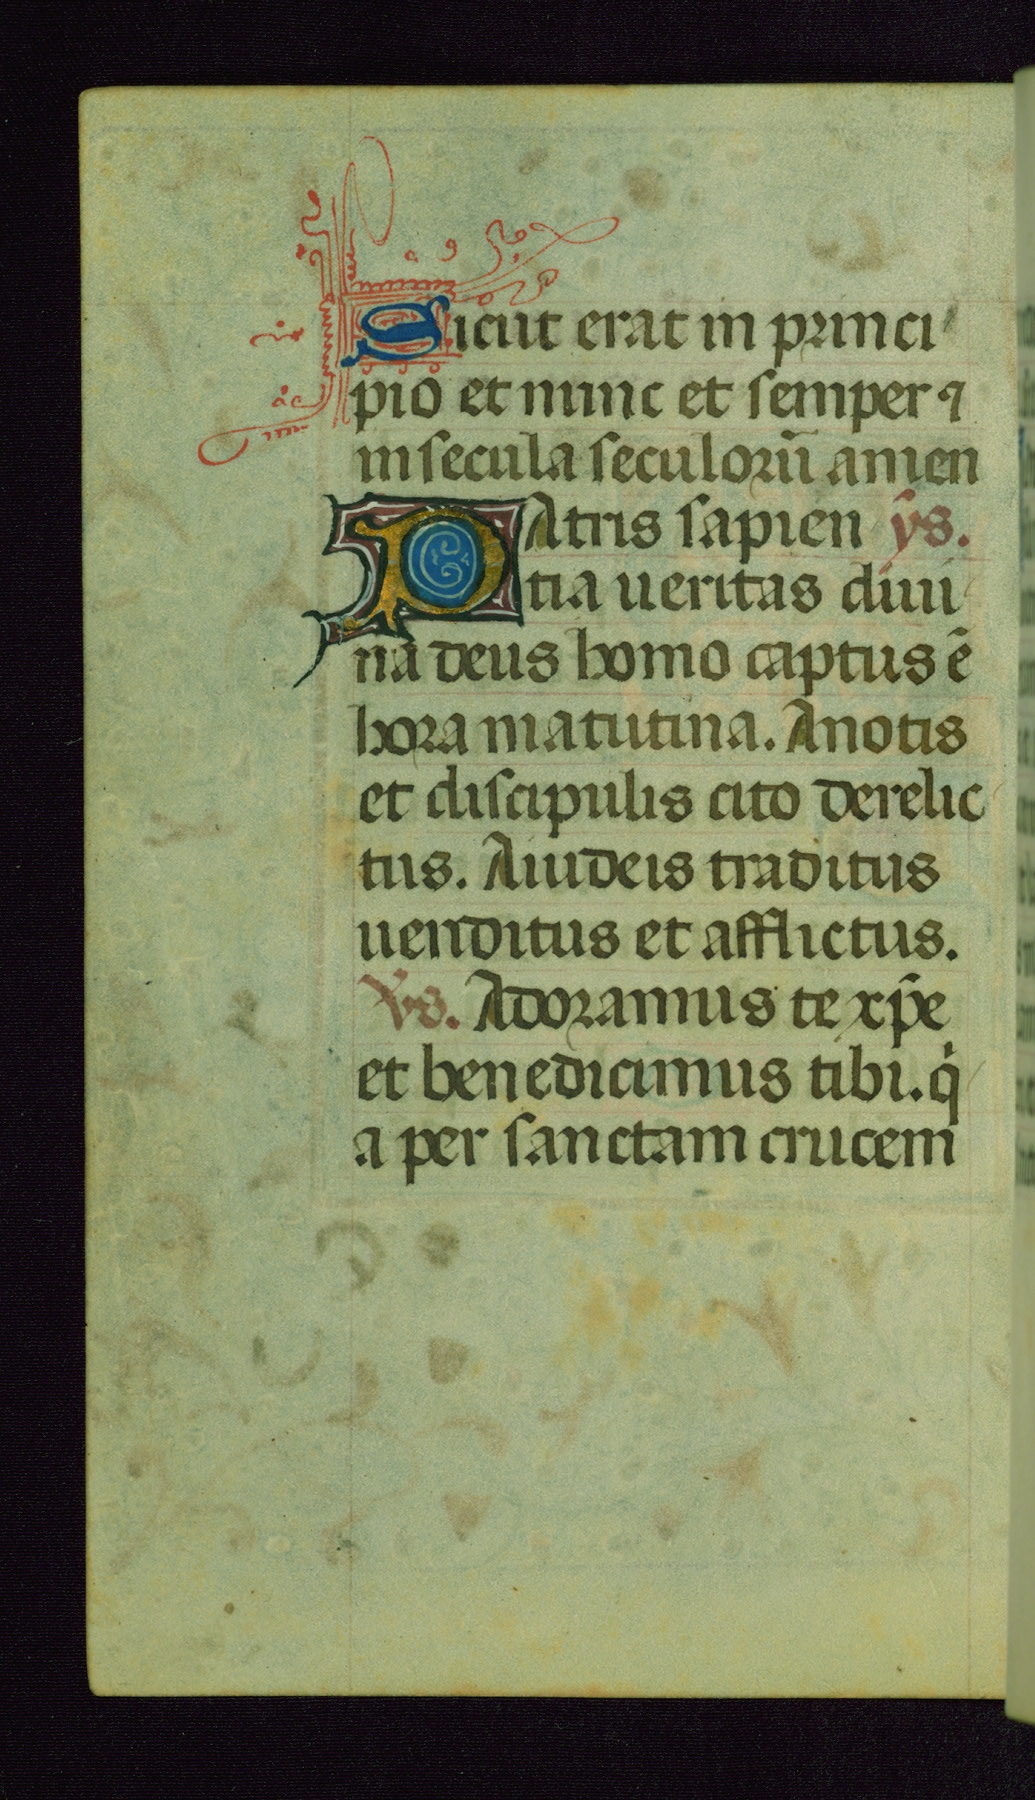 Sicut erat in princi
pio et nunc et semper ⁊
in secula seculorū amen
PAtris sapien ẏs.
tia ueritas diui
na deus homo captus ē
hora matutina. Anotis
et discipulis cito derelic
tus. Aiudeis traditus
uenditus et afflictus.
Vs. Adoramus te xp̄e
et benedicimus tibi. qi
a per sanctam crucem